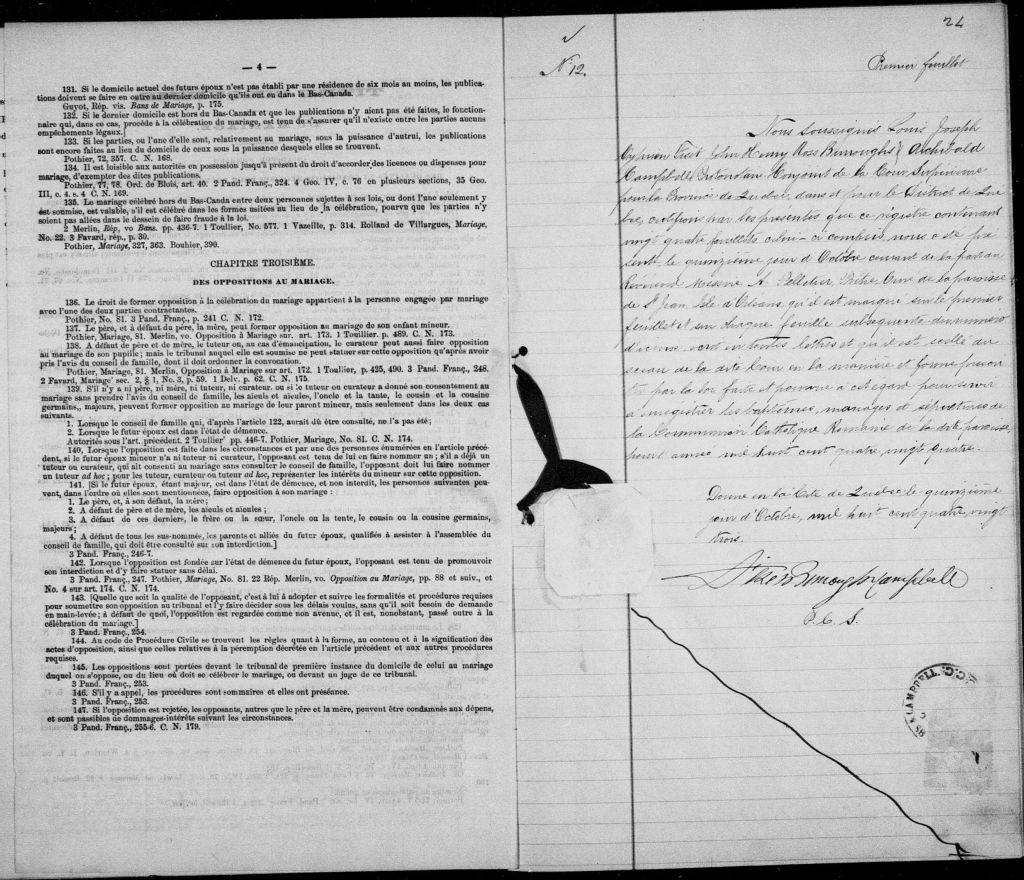 — 4 —
131. Si le domicile actuel des futurs époux n'est pas établi par une résidence de six mois au moins, les publica-
tions doivent se faire en outre au dernier domicile qu'ils ont eu dans le Bas-Canada.
Guyot, Rép. vis. Bans de Mariage, p. 175.
132. Si le dernier domicile est hors du Bas-Canada et que les publications n'y aient pas été faites, le fonction-
naire qui, dans ce cas, procède à la célébration du mariage, est tenu de s'assurer qu'il n'existe entre les parties aucuns
empêchements légaux.]
133. Si les parties, ou l'une d'elle sont, relativement au mariage, sous la puissance d'autrui, les publications
sont encore faites au lieu du domicile de ceux sous la puissance desquels elles se trouvent.
Pothier, 72, 357. C. N. 168.
134. Il est loisible aux autorités en possession jusqu'à présent du droit d'accorder des licences ou dispenses pour
mariage, d'exempter des dites publications.
Pothier, 77, 78. Ord. de Blois, art. 40. 2 Pand. Franç., 324. 4 Geo. IV, c. 76 en plusieurs sections, 35 Geo.
III, c. 4. s. 4 C. N. 169.
135. Le mariage célébré hors du Bas-Canda entre deux personnes sujettes à ses lois, ou dont l'une seulement y
est soumise, est valable, s'il est célébré dans les formes usitées au lieu de la célébration, pourvu que les parties n'y
soient pas allées dans le dessein de faire fraude à la loi.
2 Merlin, Rép, vo Bans. pp. 436-7. 1 Toullier, No. 577. 1 Vazeille, p. 314. Rolland de Villargues, Mariage,
No. 22. 3 Favard, rép., p. 30.
Pothier, Mariage, 327, 363. Bouhier, 390.
CHAPITRE TROISIÈME.
DES OPPOSITIONS AU MARIAGE.
136. Le droit de former opposition à la célébration du mariage appartient à la personne engagée par mariage
avec l'une des deux parties contractantes.
Pothier, No. 81. 3 Pand. Franç., p. 241 C. N. 172.
137. Le père, et à défaut du père, la mère, peut former opposition au mariage de son enfant mineur.
Pothier, Mariage, 81. Merlin, vo. Opposition à Mariage sur. art. 173. 1 Touillier, p. 489. C. N. 173.
138. A défaut de père et de mère, le tuteur, ou, au cas d'émancipation, le curateur peut aussi faire opposition
au mariage de son pupille; mais le tribunal auquel elle est soumise ne peut statuer sur cette opposition qu'après avoir
pris l'avis du conseil de famille, dont il doit ordonner la convocation.
Pothier, Mariage, 81. Merlin, Opposition à Mariage sur art. 172. 1 Toullier, p. 425, 490. 3 Pand. Franç., 248.
2 Favard, Mariage sec. 2, § 1, No. 3, p. 59. 1 Delv. p. 62. C. N. 175.
139. S'il n'y a ni père, ni mère, ni tuteur, ni curateur, ou si le tuteur ou curateur a donné son consentement au
mariage sans prendre l'avis du conseil de famille, les aieuls et aieules, l'oncle et la tante, le cousin et la cousine
germains, majeurs, peuvent former opposition au mariage de leur parent mineur, mais seulement dans les deux cas
suivants.
1. Lorsque le conseil de famille qui, d'après l'article 122, aurait dû être consulté, ne l'a pas été;
2. Lorsque le futur époux est dans l'état de démence.
Autorités sous l'art. précédent. 2 Toullier pp. 446-7. Pothier, Mariage, No. 81. C. N. 174.
140. Lorsque l'opposition est faite dans les circonstances et par une des personnes énumérées en l'article précé-
dent, si le futur époux mineur n'a ni tuteur ni curateur, l'opposant est tenu de lui en faire nommer un; s'il a déjà un
tuteur ou curateur, qui ait consenti au mariage sans consulter le conseil de famille, l'opposant doit lui faire nommer
un tuteur ad hoc; pour les tuteur, curateur ou tuteur ad hoc, représenter les intérêts du mineur sur cette opposition.
141. [Si le futur époux, étant majeur, est dans l'état de démence, et non interdit, les personnes suivantes peu-
vent, dans l'ordre où elles sont mentionnées, faire opposition à son mariage :
1. Le père, et, à son défaut, la mère;
2. A défaut de père et de mère, les aieuls et aieules;
3. A défaut de ces dernier, le frère ou la sœur, l'oncle ou la tente, le cousin ou la cousine germains,
majeurs;
4. A défaut de tous les sus-nommés, les parents et alliés du futur époux, qualifiés à assister à l'assemblée du
conseil de famille, qui doit être consulté sur son interdiction.]
3 Pand. Franç., 246-7.
142. Lorsque l'opposition est fondée sur l'état de démence du futur époux, l'opposant est tenu de promouvoir
son interdiction et d'y faire statuer sans délai.
3 Pand. Franç., 247. Pothier, Mariage, No. 81. 22 Rép. Merlin, vo. Opposition au Mariage, pp. 88 et suiv., et
No. 4 sur art. 174. C. N. 174.
143. [Quelle que soit la qualité de l'opposant, c'est à lui à adopter et suivre les formalités et procédures requises
pour soumettre son opposition au tribunal et l'y faire décider sous les délais voulus, sans qu'il soit besoin de demande
en main-levée; à défaut de quoi, l'opposition est regardée comme non avenue, et il est, nonobstant, passé outre à la
célébration du mariage.]
3 Pand. Franç., 254.
144. Au code de Procédure Civile se trouvent les règles quant à la forme, au contenu et à la signification des
actes d'opposition, ainsi que celles relatives à la péremption décrétée en l'article précédent et aux autres procédures
requises.
145. Les oppositions sont portées devant le tribunal de première instance du domicile de celui au mariage
duquel on s'oppose, ou du lieu où doit se célébrer le mariage, ou devant un juge de ce tribunal.
3 Pand. Franç., 253.
146. S'il y a appel, les procédures sont sommaires et elles ont préséance.
3 Pand. Franç., 253.
147. Si l'opposition est rejetée, les opposants, autres que le père et la mère, peuvent être condamnés aux dépens,
et sont passibles de dommages-intérêts suivant les circonstances.
3 Pand. Franç., 255-6. C. N. 179.
24
No 12.
Premier feuillet
Nous soussignés Louis Joseph
Cyprien Fiset John Henry Ross Burroughs & Archibald
Campbell Protonotaire Conjoint de la Cour Supérieure
pour la Province de Québec, dans et pour le District de Qué
bec, certifions par les présentes que ce régistre contenant
vingt quatre feuillets celui-ci compris, nous a été pré
senté le quinzième jour d'Octobre courant de la part du
Révérend Messire A. Pelletier, Prêtre, Curé de la paroisse
de St Jean, Isle d'Orléans, qu'il est marqué sur le premier
feuillet et sur chaque feuille subséquente du numéro
d'icelle écrit en toutes lettres et qu'il est scellé du
sceau de la dite Cour en la manière et forme prescri
te par la loi faite et pourvue à cet égard pour servir
à enregistrer les baptêmes, mariages et sépultures de
la Communion Catholique Romaine de la dite paroisse,
pour l'année mil huit cent quatre vingt quatre.
Donné en la Cité de Québec le quinzième
jour d'Octobre, mil huit cent quatre vingt
trois.
Fiset Burroughs Campbell
P. C. S.